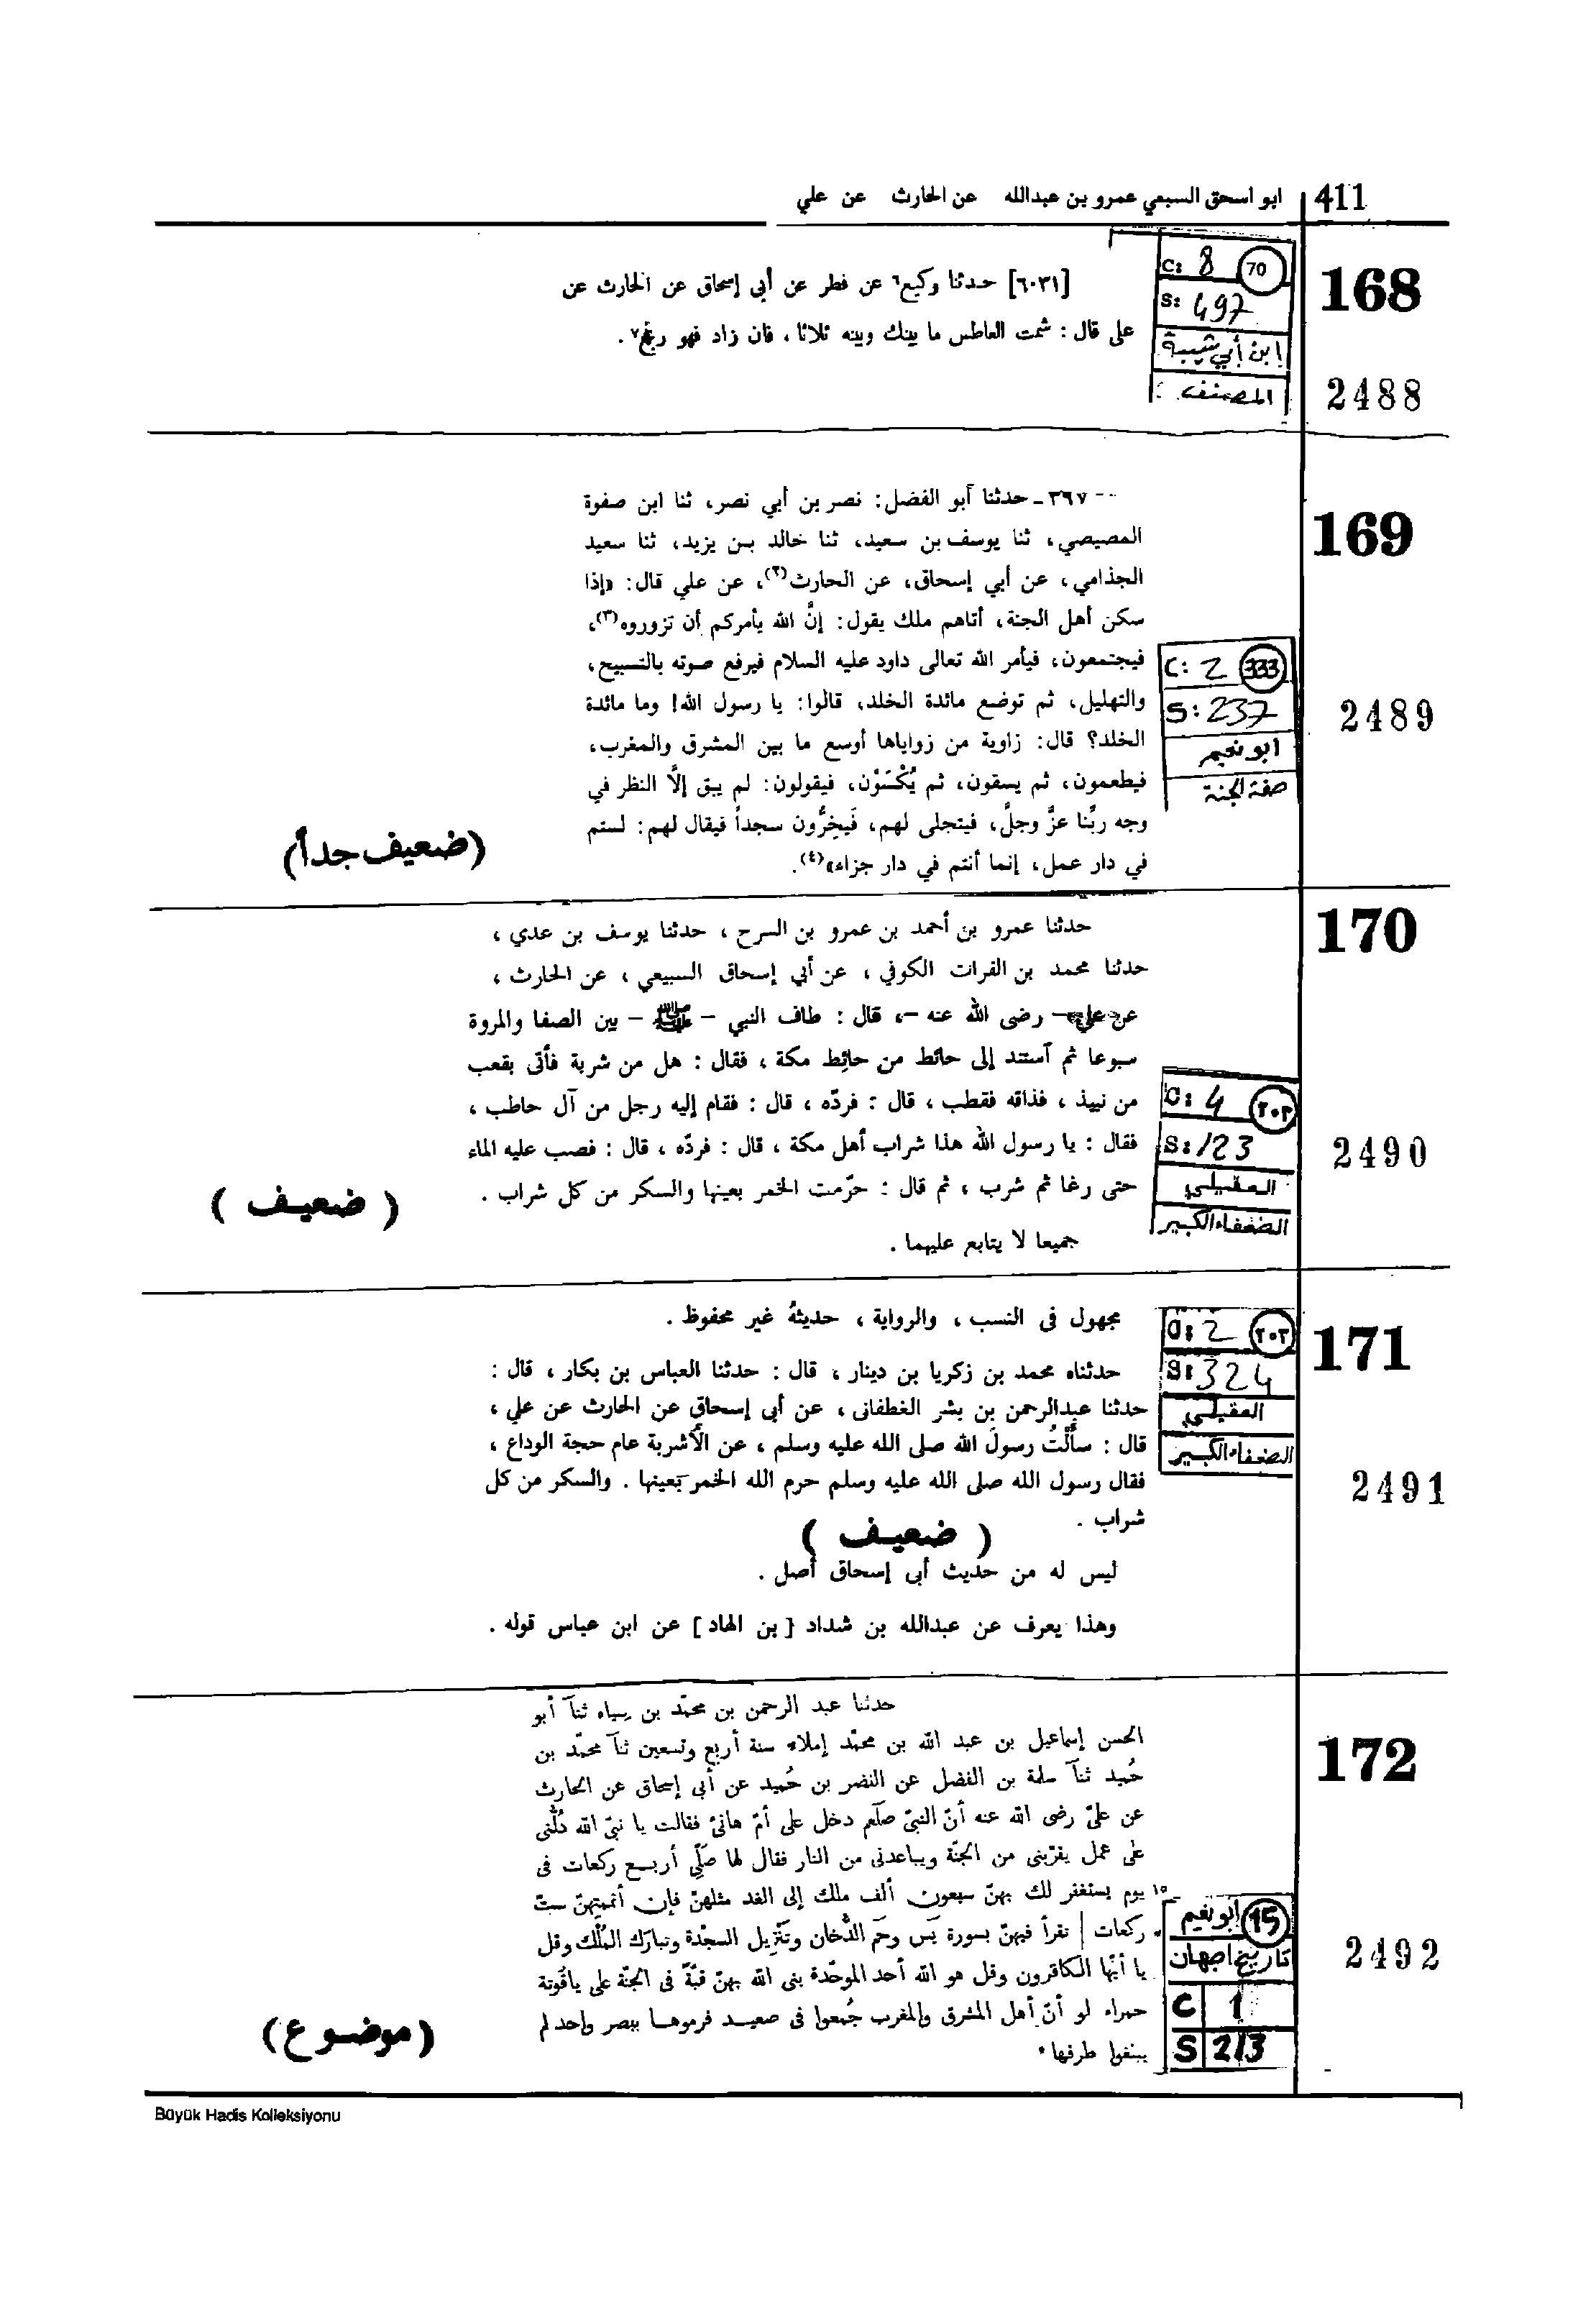 411
ابو اسحق السبعي عمرو بن عبدالله عن الحارث عن علي
168
C: 8 70
S: 497
ابن أبي شيبة
المصنف
2488
[٦٠٣١] حدثنا وكيع٦ عن فطر عن أبي إسحاق عن الحارث عن
على قال : شمت العاطس ما بينك وبينه ثلاثا ، فان زاد فهو ريح٧ .
169
٣٦٧ ـ حدثنا أبو الفضل: نصر بن أبي نصر، ثنا ابن صفوة
المصيصي، ثنا يوسف بن سعيد، ثنا خالد بن يزيد، ثنا سعيد
الجذامي، عن أبي إسحاق، عن الحارث(٢)، عن علي قال: «إذا
سكن أهل الجنة، أتاهم ملك يقول: إنَّ الله يأمركم أن تزوروه(٣)،
فيجتمعون، فيأمر الله تعالى داود عليه السلام فيرفع صوته بالتسبيح،
والتهليل، ثم توضع مائدة الخلد، قالوا: يا رسول الله! وما مائدة
الخلد؟ قال: زاوية من زواياها أوسع ما بين المشرق والمغرب،
فيطعمون، ثم يسقون، ثم يُكْسَوْن، فيقولون: لم يبق إلَّا النظر في
وجه ربِّنا عزَّ وجلَّ، فيتجلى لهم، فَيخِرُّون سجداً فيقال لهم: لستم
في دار عمل، إنما أنتم في دار جزاء»(٤).
(ضعيف جداً)
C: 2 333
S: 237
ابو نعيم
صفة الجنة
2489
170
حدثنا عمرو بن أحمد بن عمرو بن السرح ، حدثنا يوسف بن عدي ،
حدثنا محمد بن الفرات الكوفي ، عن أبي إسحاق السبيعي ، عن الحارث ،
عن علي – رضى الله عنه –، قال : طاف النبي – ﷺ – بين الصفا والمروة
سبوعا ثم أستند إلى حائط من حائِط مكة ، فقال : هل من شربة فأتى بقعب
من نبيذ ، فذاقه فقطب ، قال : فردّه ، قال : فقام إليه رجل من آل حاطب ،
فقال : يا رسول الله هذا شراب أهل مكة ، قال : فردّه ، قال : فصب عليه الماء
حتى رغا ثم شرب ، ثم قال : حرّمت الخمر بعينها والسكر من كل شراب .
جميعا لا يتابع عليهما .
( ضعيف )
C: 4 ٢٠٢
S: 123
العقيلي
الضعفاء الكبير
2490
171
مجهول فى النسب ، والرواية ، حديثهُ غير محفوظ .
حدثناه محمد بن زكريا بن دينار ، قال : حدثنا العباس بن بكار ، قال :
حدثنا عبدالرحمن بن بشر الغطفانى ، عن أبى إسحاق عن الحارث عن علي ،
قال : سأَلْتُ رسولَ الله صلى الله عليه وسلم ، عن الأَشربة عام حجة الوداع ،
فقال رسول الله صلى الله عليه وسلم حرم الله الخمر بعينها . والسكر من كل
شراب .
( ضعيف )
ليس له من حديث أبى إسحاق أصل .
وهذا يعرف عن عبدالله بن شداد [ بن الهاد ] عن ابن عباس قوله .
C: 2 ٢٠٢
S: 324
العقيلي
الضعفاء الكبير
2491
172
حدثنا عبد الرحمن بن محمّد بن سياه ثنآ أبو
الحسن إسماعيل بن عبد الله بن محمّد إملاء سنة أربع وتسعين ثنآ محمّد بن
حُميد ثنآ سلمة بن الفضل عن النضر بن حُميد عن أبى إسحاق عن الحارث
عن علىّ رضى الله عنه أنّ النبىّ صلعم دخل على أمّ هانئ فقالت يا نبىّ الله دُلّنى
على عمل يقرّبنى من الجنّة ويباعدنى من النار فقال لها صَلِّى أربع ركعات فى
١٥ يوم يستغفر لك بهنّ سبعون ألف ملك إلى الغد مثلهنّ فإن أتممتِهنّ ستّ
ركعات | تقرأ فيهنّ بسورة يٓس وحمٓ الدُّخان وتَنْزِيل السجْدة وتبارك المُلْك وقل
يا أيّها الكافرون وقل هو الله أحد الموحّدة بنى الله بهنّ قبّةً فى الجنّة على ياقوتة
حمراء لو أنّ أهل المشرق والمغرب جُمعوا فى صعيد فرموها ببصر واحد لم
يبلغوا طرفها
(موضوع)
ابو نعيم 15
تاريخ اصبهان
C 1
S 213
2492
Büyük Hadis Kolleksiyonu